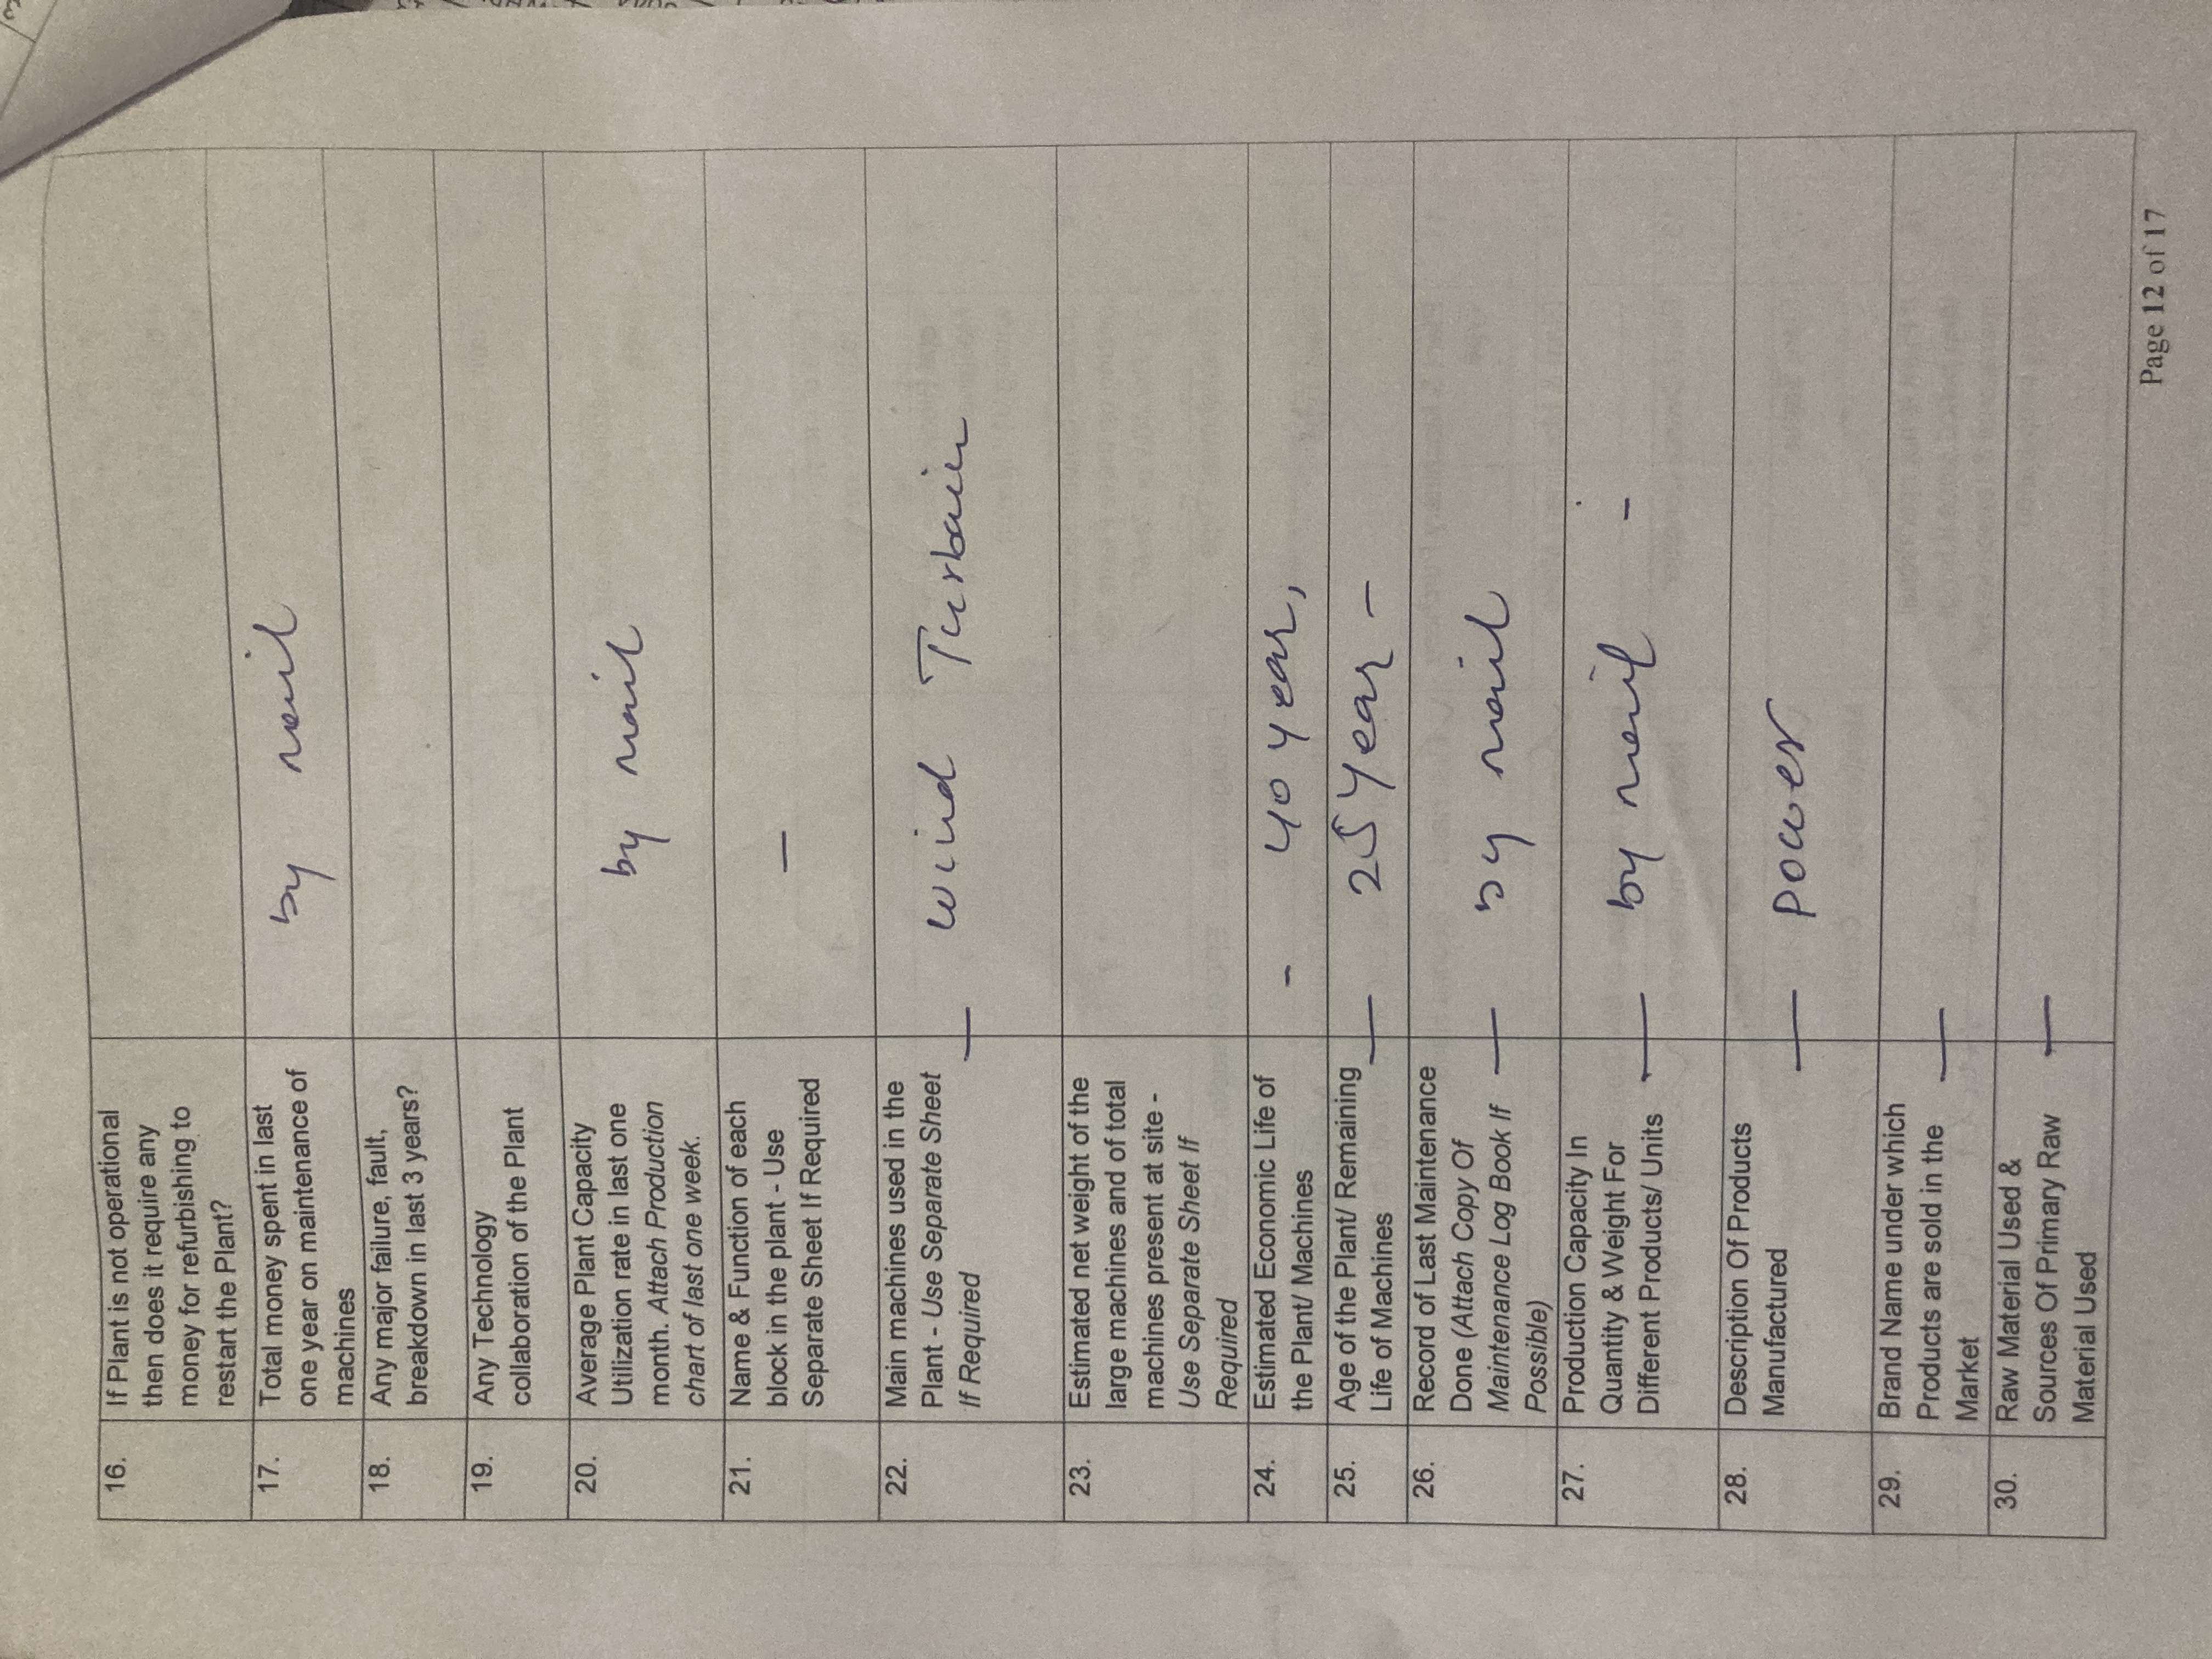 16. If Plant is not operational
then does it require any
money for refurbishing to
restart the Plant?
17. Total money spent in last
one year on maintenance of
machines
by mail
18. Any major failure, fault,
breakdown in last 3 years?
19. Any Technology
collaboration of the Plant
20. Average Plant Capacity
Utilization rate in last one
month. Attach Production
chart of last one week.
by mail
21. Name & Function of each
block in the plant - Use
Separate Sheet If Required
—
22. Main machines used in the
Plant - Use Separate Sheet
If Required
— Wind Turbain
23. Estimated net weight of the
large machines and of total
machines present at site -
Use Separate Sheet If
Required
24. Estimated Economic Life of
the Plant/ Machines
- 40 year,
25. Age of the Plant/ Remaining
Life of Machines
— 25 Year -
26. Record of Last Maintenance
Done (Attach Copy Of
Maintenance Log Book If
Possible)
— by mail
27. Production Capacity In
Quantity & Weight For
Different Products/ Units
— by mail -
28. Description Of Products
Manufactured
— Power
29. Brand Name under which
Products are sold in the
Market
—
30. Raw Material Used &
Sources Of Primary Raw
Material Used
—
Page 12 of 17